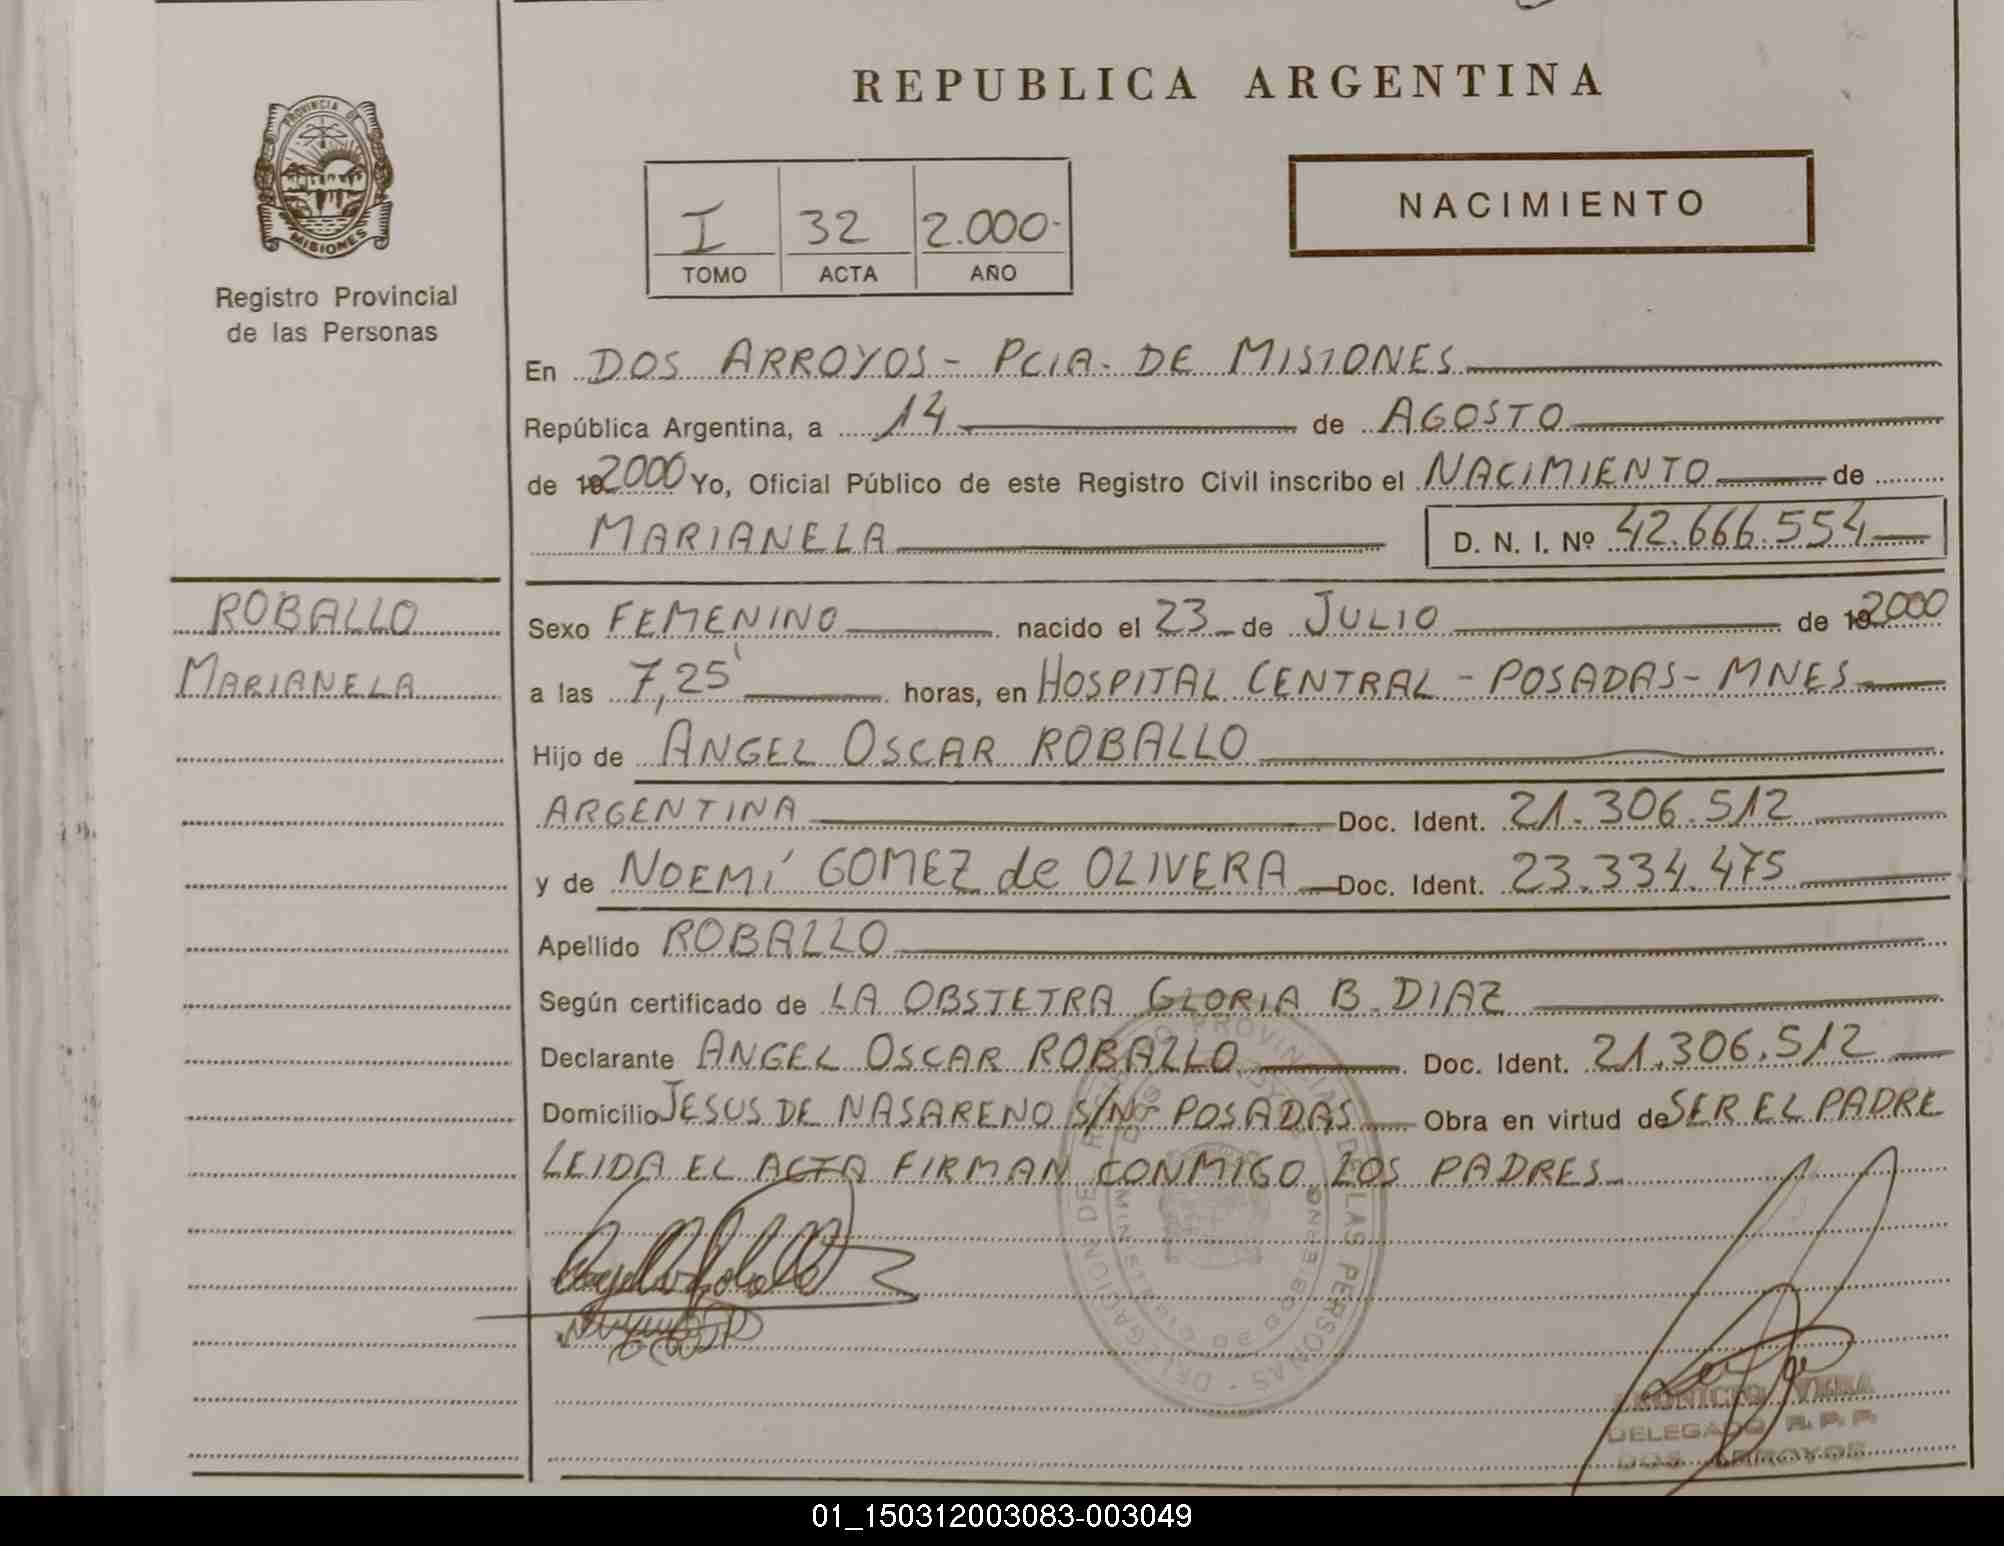 REPUBLICA ARGENTINA
PROVINCIA DE
MISIONES
Registro Provincial
de las Personas
I 32 2.000-
TOMO ACTA AÑO
NACIMIENTO
En DOS ARROYOS - PCIA. DE MISIONES
República Argentina, a 14 de AGOSTO
de 192000 Yo, Oficial Público de este Registro Civil inscribo el NACIMIENTO de
MARIANELA D. N. I. Nº 42.666.554
ROBALLO
MARIANELA
Sexo FEMENINO nacido el 23 de JULIO de 192000
a las 7,25' horas, en HOSPITAL CENTRAL - POSADAS - MNES
Hijo de ANGEL OSCAR ROBALLO
ARGENTINA Doc. Ident. 21.306.512
y de NOEMÍ GOMEZ de OLIVERA Doc. Ident. 23.334.475
Apellido ROBALLO
Según certificado de LA OBSTETRA GLORIA B. DIAZ
Declarante ANGEL OSCAR ROBALLO Doc. Ident. 21.306.512
Domicilio JESUS DE NASARENO S/Nº POSADAS Obra en virtud de SER EL PADRE
LEIDA EL ACTA FIRMAN CONMIGO LOS PADRES
DELEGACION DE REGISTRO PROVINCIAL DE LAS PERSONAS
MINISTERIO DE GOBIERNO
VERA
DELEGADO R. P. P.
DOS ARROYOS
01_150312003083-003049